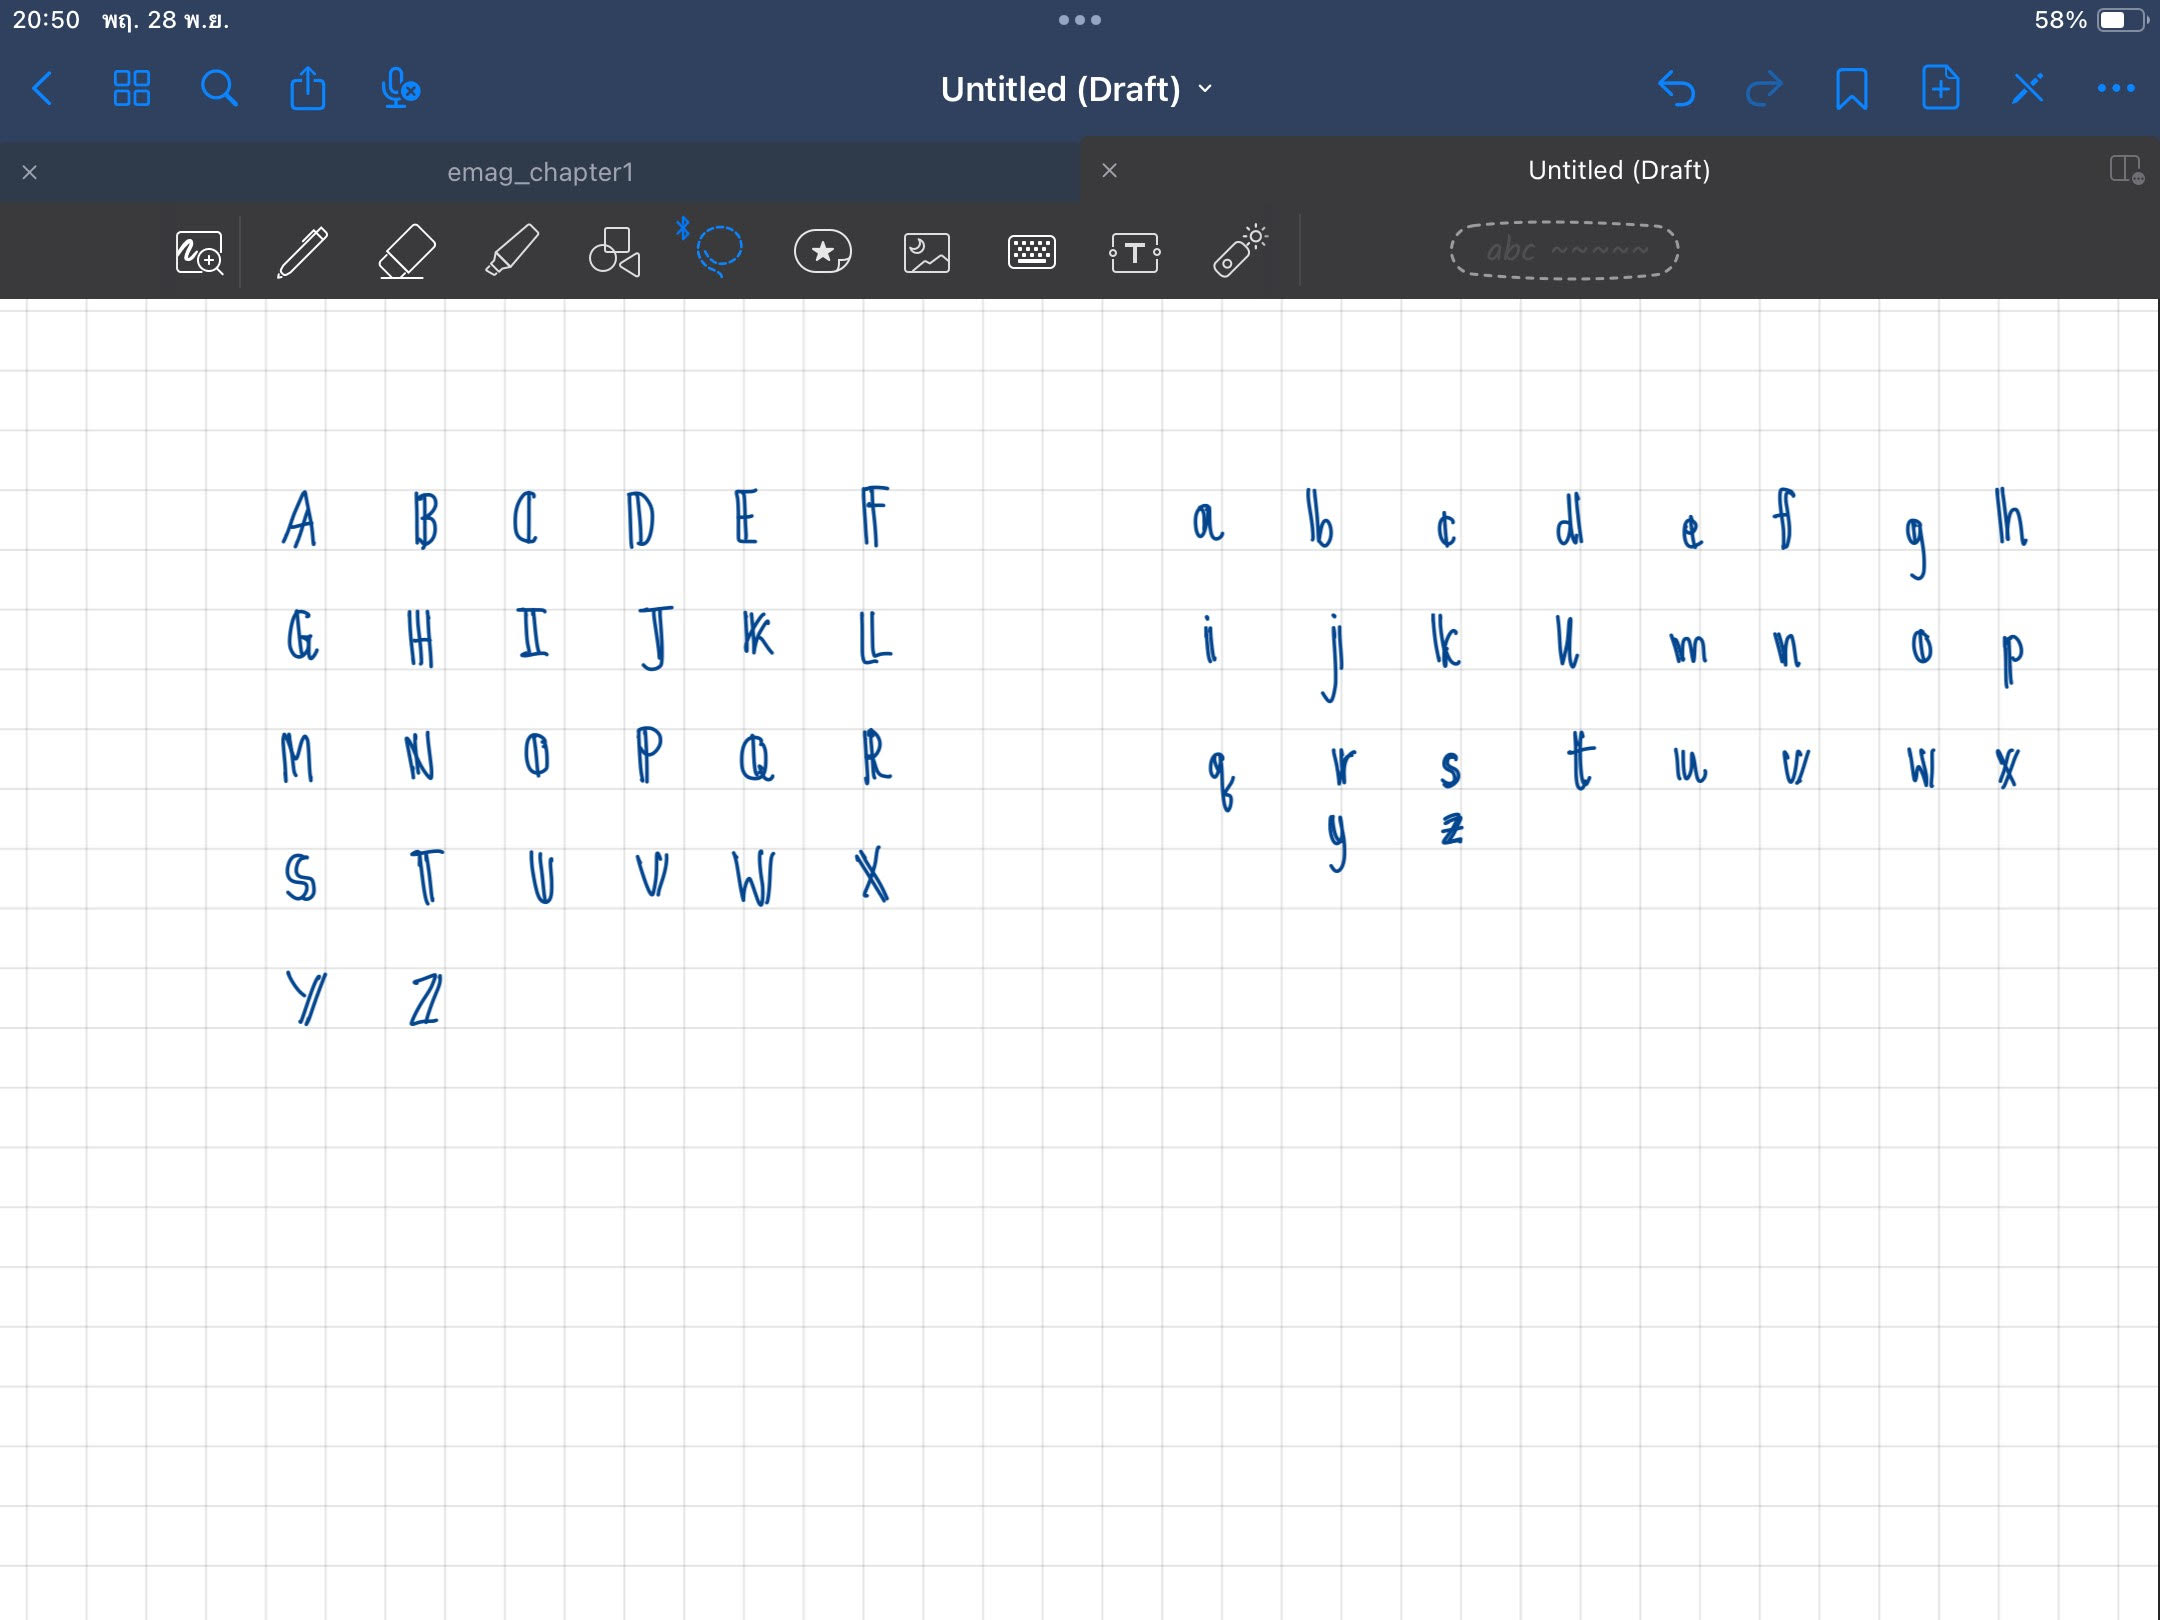 20:50 พฤ. 28 พ.ย. 58%
Untitled (Draft)
emag_chapter1 Untitled (Draft)
T abc
A B C D E F
G H I J K L
M N O P Q R
S T U V W X
Y Z
a b c d e f g h
i j k l m n o p
q r s t u v w x
y z